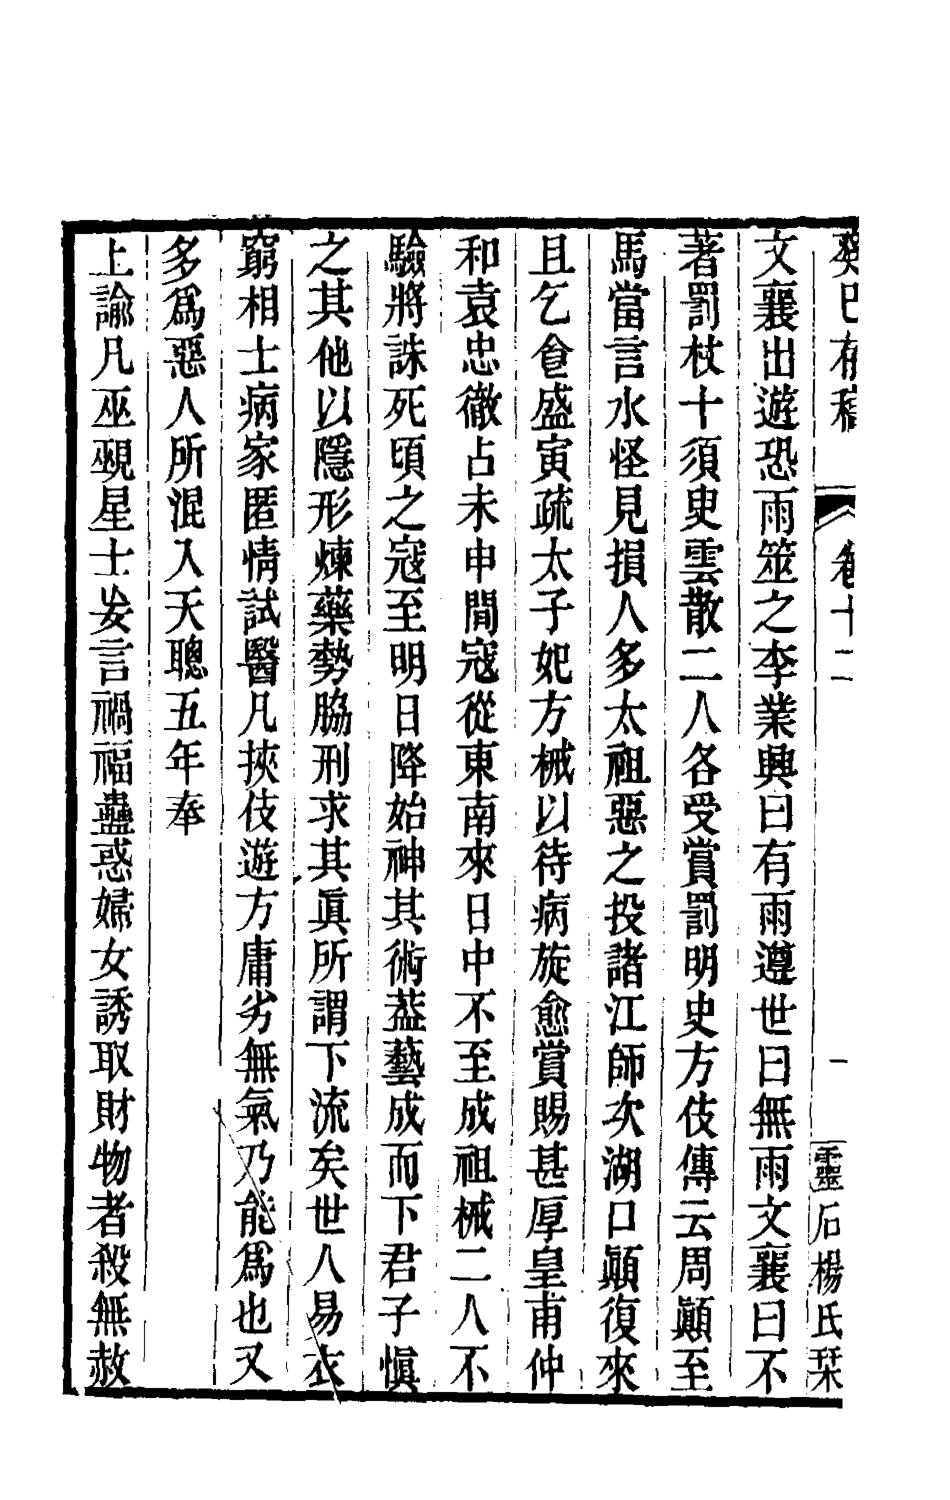 癸巳存稿 卷十二 一 靈石楊氏栞
文襄出遊恐雨筮之李業興曰有雨遵世曰無雨文襄曰不
著罰杖十須臾雲散二人各受賞罰明史方伎傳云周顚至
馬當言水怪見損人多太祖惡之投諸江師次湖口顚復來
且乞食盛寅疏太子妃方械以待病旋愈賞賜甚厚皇甫仲
和袁忠徹占未申閒寇從東南來日中不至成祖械二人不
驗將誅死頃之寇至明日降始神其術葢藝成而下君子愼
之其他以隱形煉藥勢脇刑求其眞所謂下流矣世人易衣
窮相士病家匿情試醫凡挾伎遊方庸劣無氣乃能爲也又
多爲惡人所混入天聰五年奉
上諭凡巫覡星士妄言禍福蠱惑婦女誘取財物者殺無赦